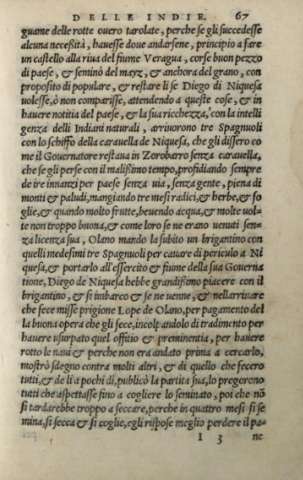 DELLE INDIE. 67
guame delle rotte ouero tarolate, perche se gli succedesse
alcuna necessità, hauesse doue andarsene, principio a fare
un castello alla riua del fiume Veragua, corse buon pezzo
di paese, & seminò del mayz, & anchora del grano, con
proposito di populare, & restare li se Diego di Niquesa
uolesse, ò non comparisse, attendendo a queste cose, & in
hauere notitia del paese, & la sua ricchezza, con la intelli
genza delli Indiani naturali, arriuorono tre Spagnuoli
con lo schiffo della carauella de Niquesa, che gli dissero co
me il Gouernatore restaua in Zorobarro senza carauella,
che se gli perse con il malissimo tempo, profidiando sempre
de ire innanzi per paese senza uia, senza gente, piena di
monti & paludi, mangiando tre mesi radici, & herbe, & fo
glie, & quando molto frutte, beuendo acqua, & molte uol-
te non troppo buona, & come loro se ne erano uenuti sen-
za licenza sua, Olano mando la subito un brigantino con
quelli medesimi tre Spagnuoli per cauare di periculo a Ni
quesa, & portarlo all'essercito & fiume della sua Gouerna
tione, Diego de Niquesa hebbe grandissimo piacere con il
brigantino, & si imbarco & se ne uenne, & nell'arriuare
che fece misse prigione Lope de Olano, per pagamento del
la buona opera che gli fece, incolpandolo di tradimento per
hauere usurpato quel offitio & preminentia, per hauere
rotto le naui & perche non era andato prima a cercarlo,
mostrò sdegno contra molti altri, & di quello che fecero
tutti, & de li a pochi di, publicò la partita sua, lo pregorono
tutti che aspettasse fino a cogliere lo seminato, poi che nò
si tardarebbe troppo a seccare, perche in quattro mesi si se
mina, si secca & si coglie, egli rispose meglio perdere il pa-
I 3 ne